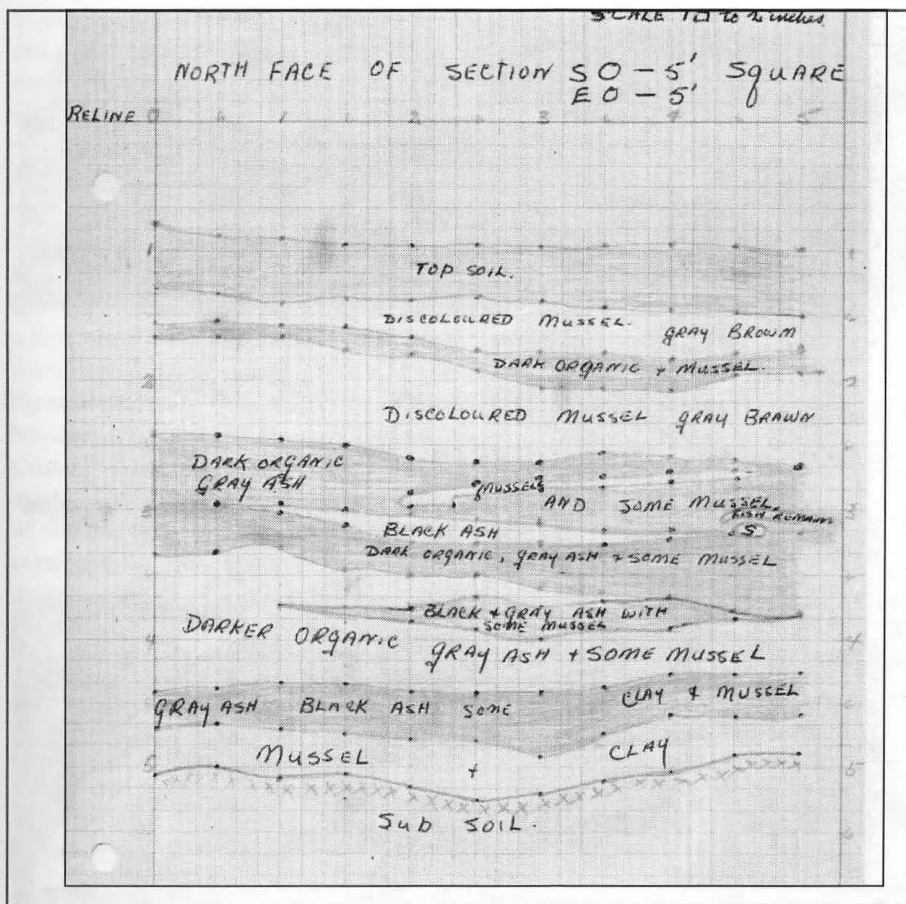 SCALE 1□ to 2 inches
NORTH FACE OF SECTION SO-5' SQUARE
EO-5'
RELINE 0 1 2 3 4 5
1 1
TOP SOIL.
DISCOLOURED MUSSEL. GRAY BROWN
DARK ORGANIC + MUSSEL.
2 2
DISCOLOURED MUSSEL GRAY BRAWN
DARK ORGANIC
GRAY ASH MUSSELS AND SOME MUSSEL.
3 3
FISH REMAINS
BLACK ASH S
DARK ORGANIC, GRAY ASH + SOME MUSSEL
BLACK + GRAY ASH WITH
SOME MUSSEL
DARKER ORGANIC
4 4
GRAY ASH + SOME MUSSEL
GRAY ASH BLACK ASH SOME CLAY & MUSSEL
MUSSEL + CLAY
5 5
Sub SOIL.